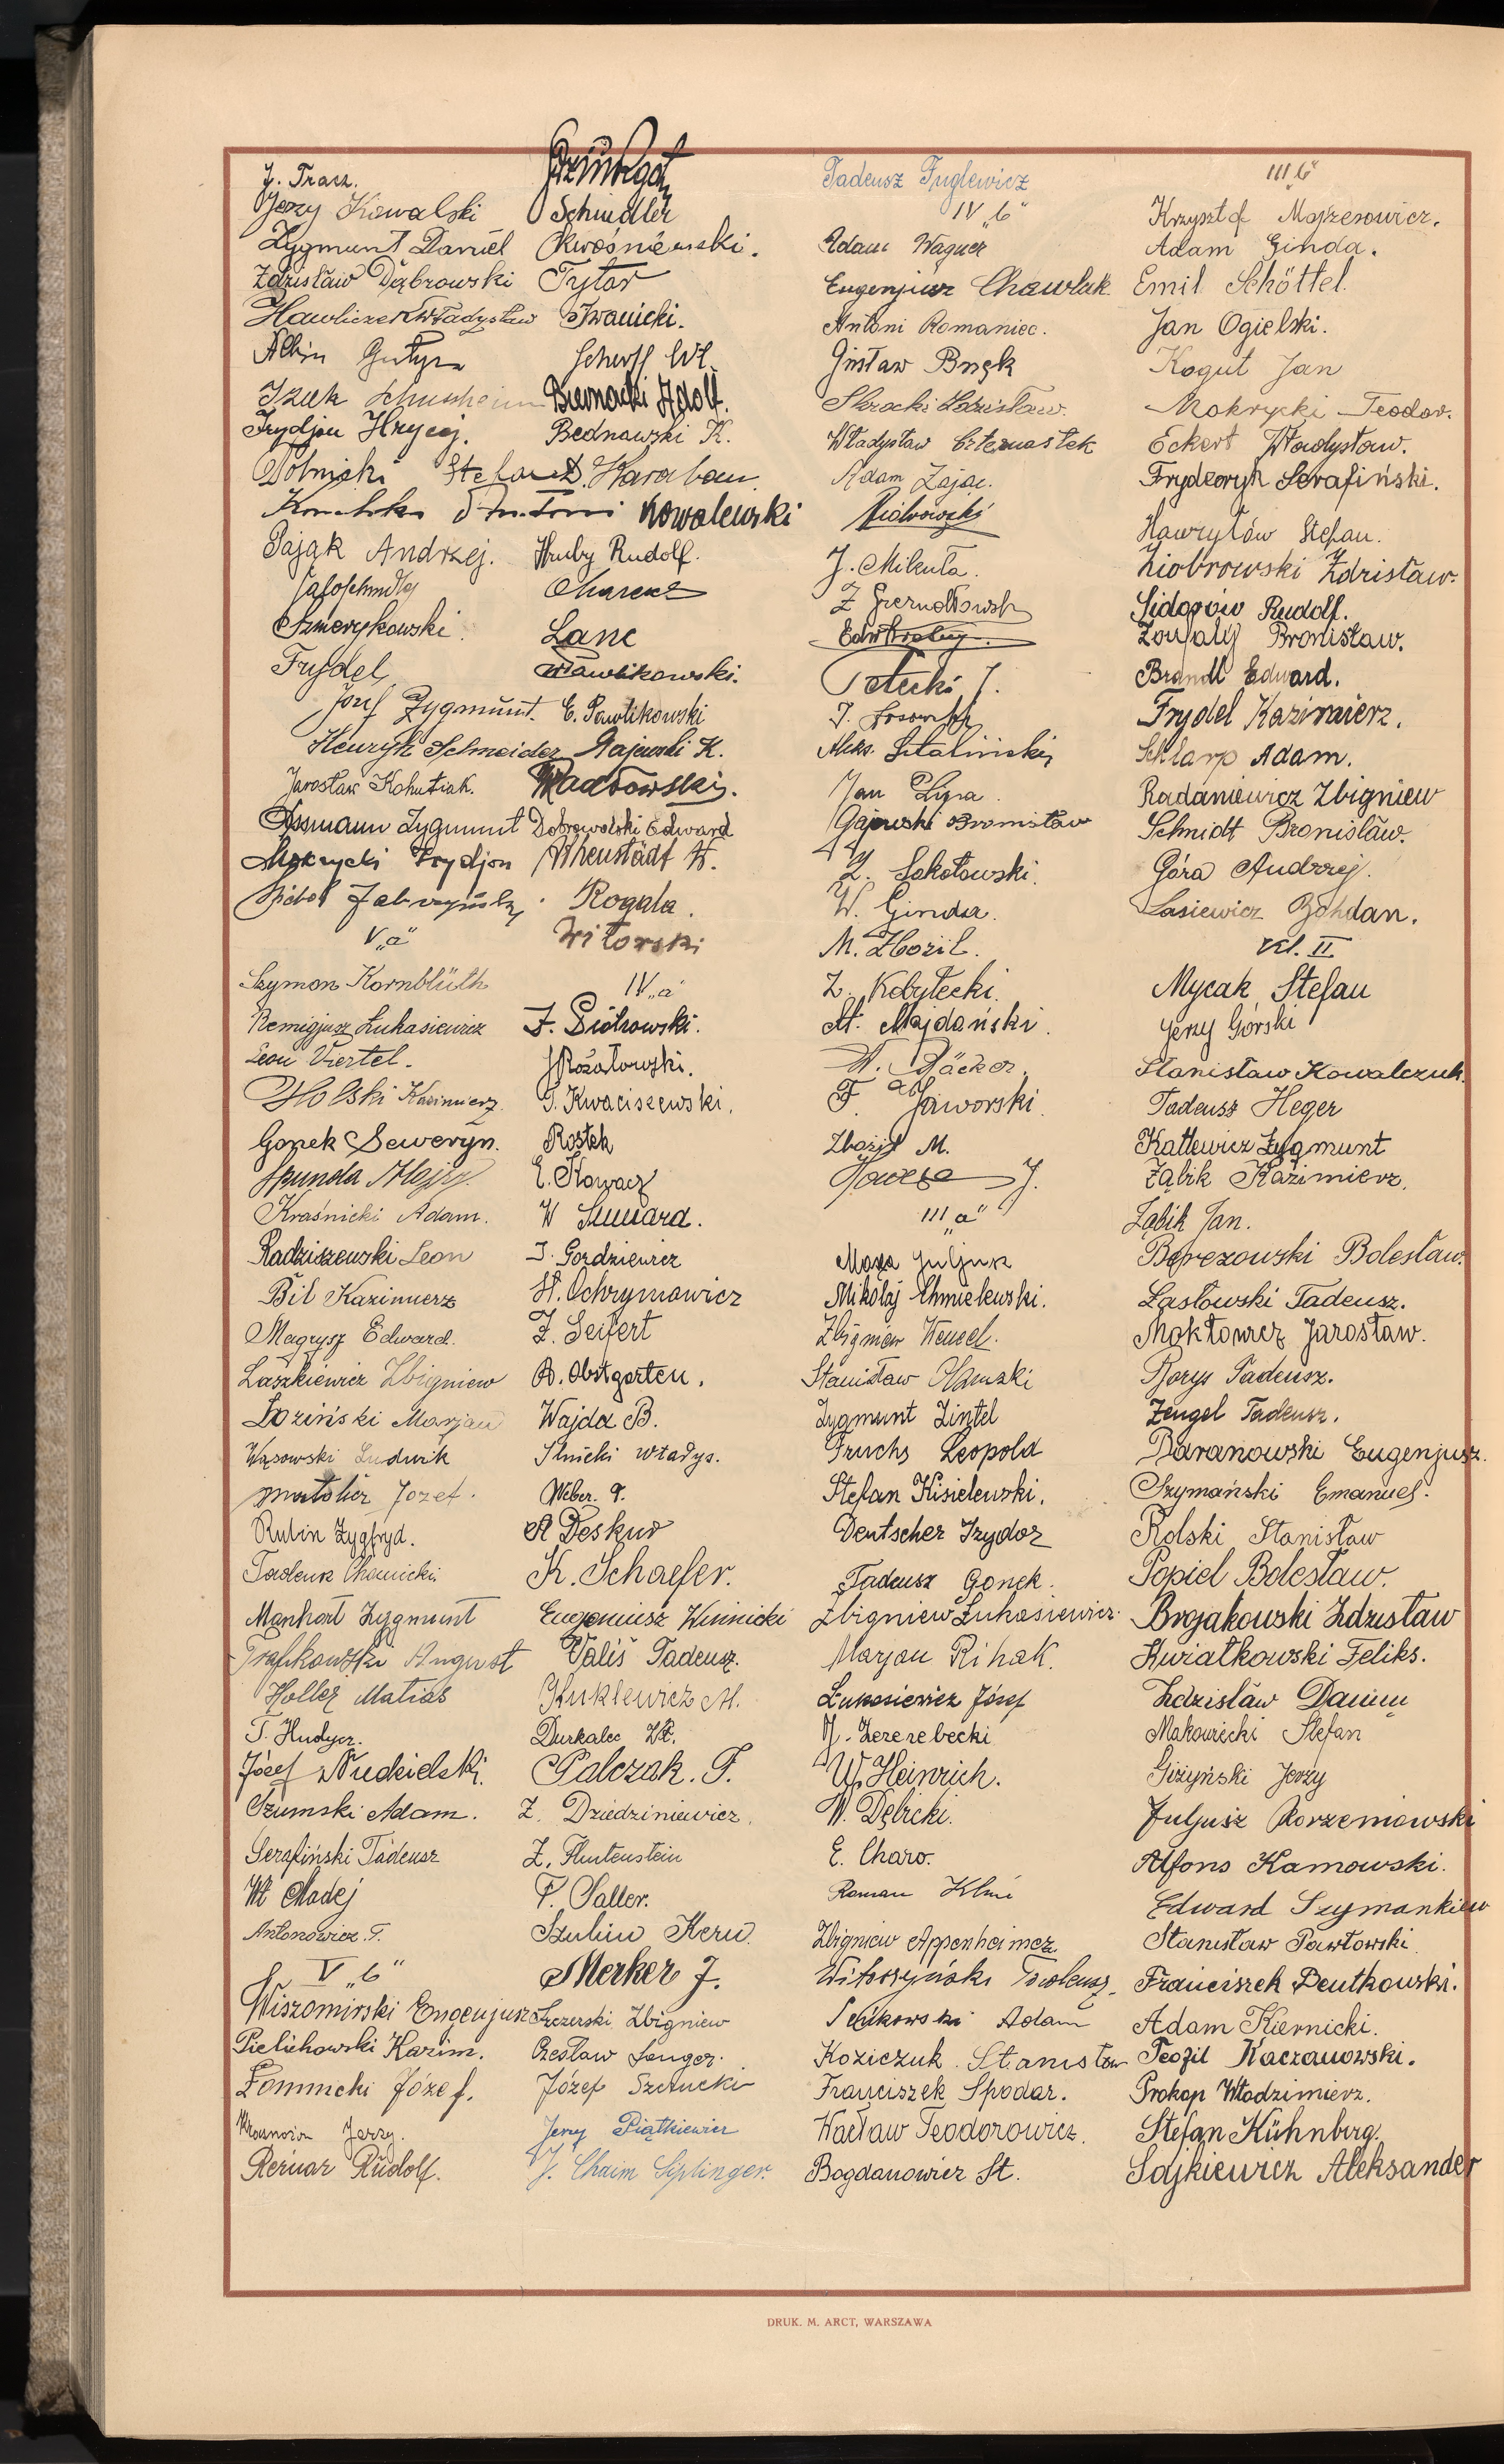 J. Tracz.
Jerzy Kowalski
Zygmunt Daniel
Zdzisław Dąbrowski
Hawliczek Władysław
Albin
Izak
Frydjon Hrycej.
Dolnicki Stefan
Antoni
Pająk Andrzej.
Szmerykowski.
Frydel
Józef Zygmunt.
Henryk Schneider
Jarosław Kohutiak.
Assmann Zygmunt
Mokrycki Frydjon
V „a"
Szymon Kornblüth
Remigjusz Łukasiewicz
Leon Viertel.
Holski Kazimierz.
Gonek Seweryn.
Spunda
Kraśnicki Adam.
Radziszewski Leon
Bil Kazimierz
Magrysz Edward.
Laszkiewicz Zbigniew
Łoziński Marjan
Wąsowski Ludwik
Józef.
Rubin Zygfryd.
Tadeusz
Manhart Zygmunt
Trafikowski August
Holler Matias
T. Hudycz.
Józef Nudzielski.
Szumski Adam.
Serafiński Tadeusz
Wł Madej
Antonowicz. T.
V „b"
Wiszomirski Eugenjusz
Pielichowski Kazim.
Łomnicki Józef.
Jerzy.
Rernar Rudolf.
Schindler
Kwaśniewski.
Tytar
Iwanicki.
Scherff Wł.
Biernacki Adolf.
Bednawski K.
D. Karaban
Kowalewski
Hruby Rudolf.
Lanc
Pawlikowski.
E. Pawlikowski
Gajewski K.
Radłowski.
Dobrowolski Edward
Rheustädt W.
Rogala.
Witowski
IV „a"
F. Piotrowski.
Rożałowski.
T. Kwaciszewski.
Rostek
E. Kowacz
W
J. Gordziewicz
H. Ochrymowicz
F. Seifert
B. Obstgarten.
Wajda B.
Słnicki Władys.
Weber. P.
A Deskur
K. Schaefer.
Eugeniusz Winnicki
Vališ Tadeusz.
Kuklewicz M.
Durkalec Wł.
Palczak. T.
Z. Dziedziniewicz.
Z. Flintenstein
F. Saller.
Szulim Kern.
Merker J.
Szczerski Zbigniew
Czesław Senger.
Józef Szczucki
Jerzy Piątkiewicz
J. Chaim Siplinger.
Tadeusz Fuglewicz
IV „b"
Adam Wagner
Eugenjusz Chawluk.
Antoni Romaniec.
Gustaw Bnęk
Skrocki Zdzisław.
Władysław Czternastek
Adam Zając.
Piotrowski
J. Mikuła.
Tetecki J.
Aleks. Sztaliński
Jan Lipa.
Gajewski Bronisław
Z. Sokołowski.
W. Ginda.
M. Zbożil.
Z. Kobyłecki.
St. Majdański.
H. Bäcker.
F. Jaworski.
Zbożil M.
J.
III „a"
Moza Juljusz
Mikołaj Chmielewski.
Zbigniew Wenzel.
Stanisław Olanski
Zygmunt Zintel
Fruchs Leopold
Stefan Kisielewski.
Deutscher Izydor
Tadeusz Gonek.
Zbigniew Łukasiewicz.
Marjan Rihak.
Łukasiewicz Józef
J. Zezerebecki
W. Heinrich.
W. Dębicki.
E. Charo.
Roman
Zbigniew Appenheimer
Witoszyński Tadeusz.
Adam
Koziczuk Stanisław
Franciszek Spodar.
Wacław Teodorowicz.
Bogdanowicz St.
III „b"
Krzysztof Mojzesowicz.
Adam Ginda.
Emil Schöttel.
Jan Ogielski.
Kogut Jan
Mokrycki Teodor.
Eckert Władysław.
Fryderyk Serafiński.
Hawryłów Stefan.
Ziobrowski Zdzisław.
Sidorów Rudolf.
Zoufalý Bronisław.
Brandl Edward.
Frydel Kazimierz.
Szklarp Adam.
Radaniewicz Zbigniew
Schmidt Bronisław.
Góra Andrzej.
Lasiewicz Bohdan.
Kl. II
Mycak Stefan
Jerzy Górski
Stanisław Kowalczuk.
Tadeusz Heger
Katlewicz Zygmunt
Ząbik Kazimierz.
Ząbik Jan.
Berezowski Bolesław.
Lasłowski Tadeusz.
Mokłowicz Jarosław.
Borys Tadeusz.
Zengel Tadeusz.
Baranowski Eugenjusz.
Szymański Emanuel.
Rolski Stanisław
Popiel Bolesław.
Brojakowski Zdzisław
Kwiatkowski Feliks.
Zdzisław
Makowiecki Stefan
Giżyński Jerzy
Juljusz Korzeniowski
Alfons Kamowski.
Edward Szymankiew
Stanisław Pawłowski
Franciszek Peutkowski.
Adam Kiernicki.
Teofil Kaczanowski.
Prokop Włodzimierz.
Stefan Kühnberg.
Sajkiewicz Aleksander
DRUK. M. ARCT, WARSZAWA